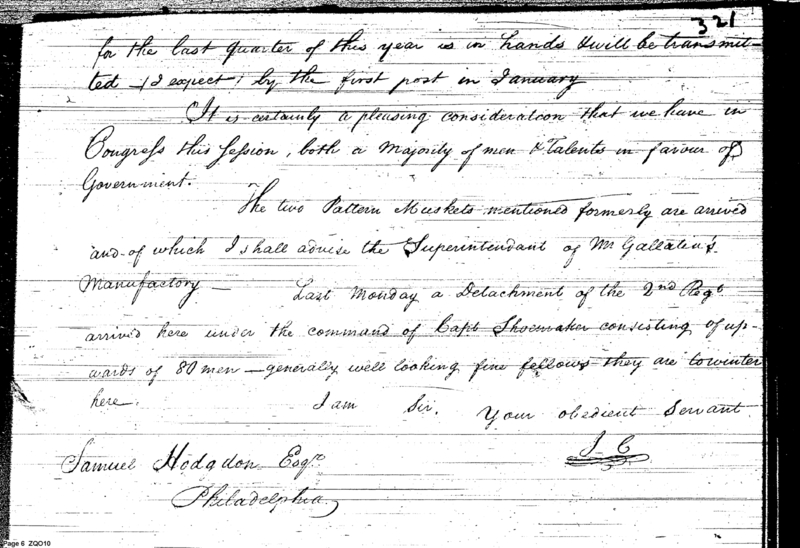 321
for the last quarter of this year is in hands & will be transmit-
ted - (I expect) by the first post in January
It is certainly a pleasing consideration that we have in
Congress this Session, both a Majority of men & Talents in favour of
Government.
The two Pattern Muskets mentioned formerly are arrived
and of which I shall advise the Superintendant of Mr Gallaten's
Manufactory — Last Monday a Detachment of the 2nd Regt
arrived here under the command of Capt Shoemaker consisting of up-
wards of 80 men — generally well looking fine fellows they are to winter
here. I am Sir. Your obedient Servant
I C
Samuel Hodgdon Esqr
Philadelphia
Page 6 ZQO10